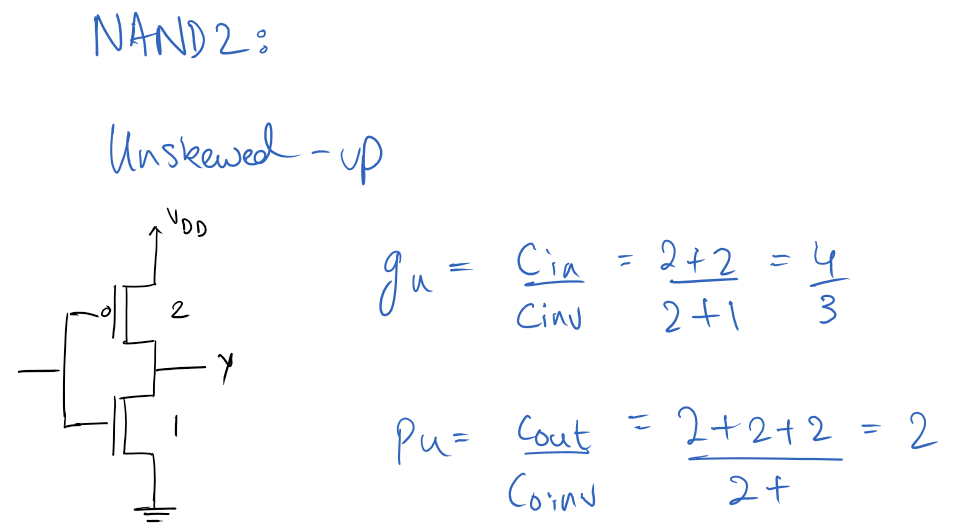 NAND2:
Unskewed-up
VDD
2
Y
1
gu = Cin/Cinv = 2+2/2+1 = 4/3
pu = Cout/Coinv = 2+2+2/2+ = 2